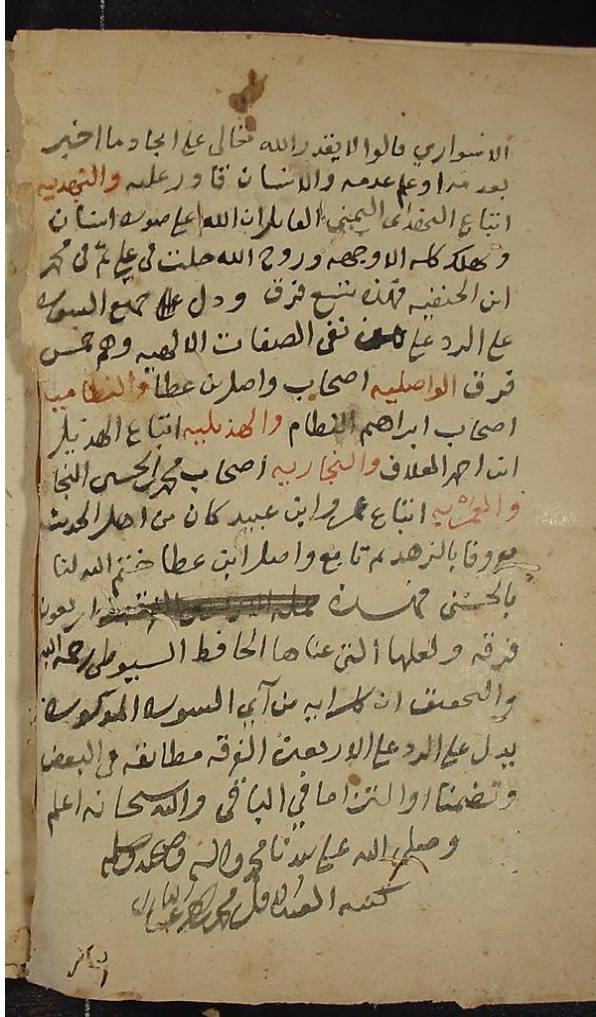 الاسواري قالوا لا يقدر الله تعالى على ايجاد ما اخبر
بعدمه او علم عدمه والانسان قادر عليه
اتباع التميمي القايل ان الله على صورة انسان
وهلك كله الا وجهه وروح الله حلت في علي ثم في محمد
ابن الحنفيه فهذه تسع فرق ودل جميع السورة
على الرد على من نفى الصفات الالهيه وهم خمس
فرق الواصليه اصحاب واصل بن عطا والنظاميه
اصحاب ابراهيم النظام والهذيليه اتباع الهذيل
ابن احمد العلاف والنجاريه اصحاب محمد بن الحسين النجا
والعمريه اتباع عمرو ابن عبيد كان من اهل الحديث
معروفا بالزهد ثم تابع واصل ابن عطا ختم الله لنا
بالحسنى فهذه اربعون
فرقه ولعلها التي عناها الحافظ السيوطي رحمه الله
والتحقيق ان كل ايه من آي السورة المذكورة
يدل على الرد على الاربعين الفرقه مطابقه في البعض
وتضمنا او التزاما في الباقي والله سبحانه اعلم
وصلى الله على سيدنا محمد واله وصحبه وسلم
كتبه العبد الاقل محمد